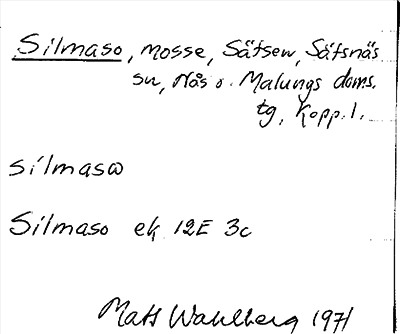 Silmaso, mosse, Sätsen, Säfsnäs
sn, Nås o. Malungs doms.
tg, Kopp. l.
silmasω
Silmaso ek 12E 3c
Mats Wahlberg 1971